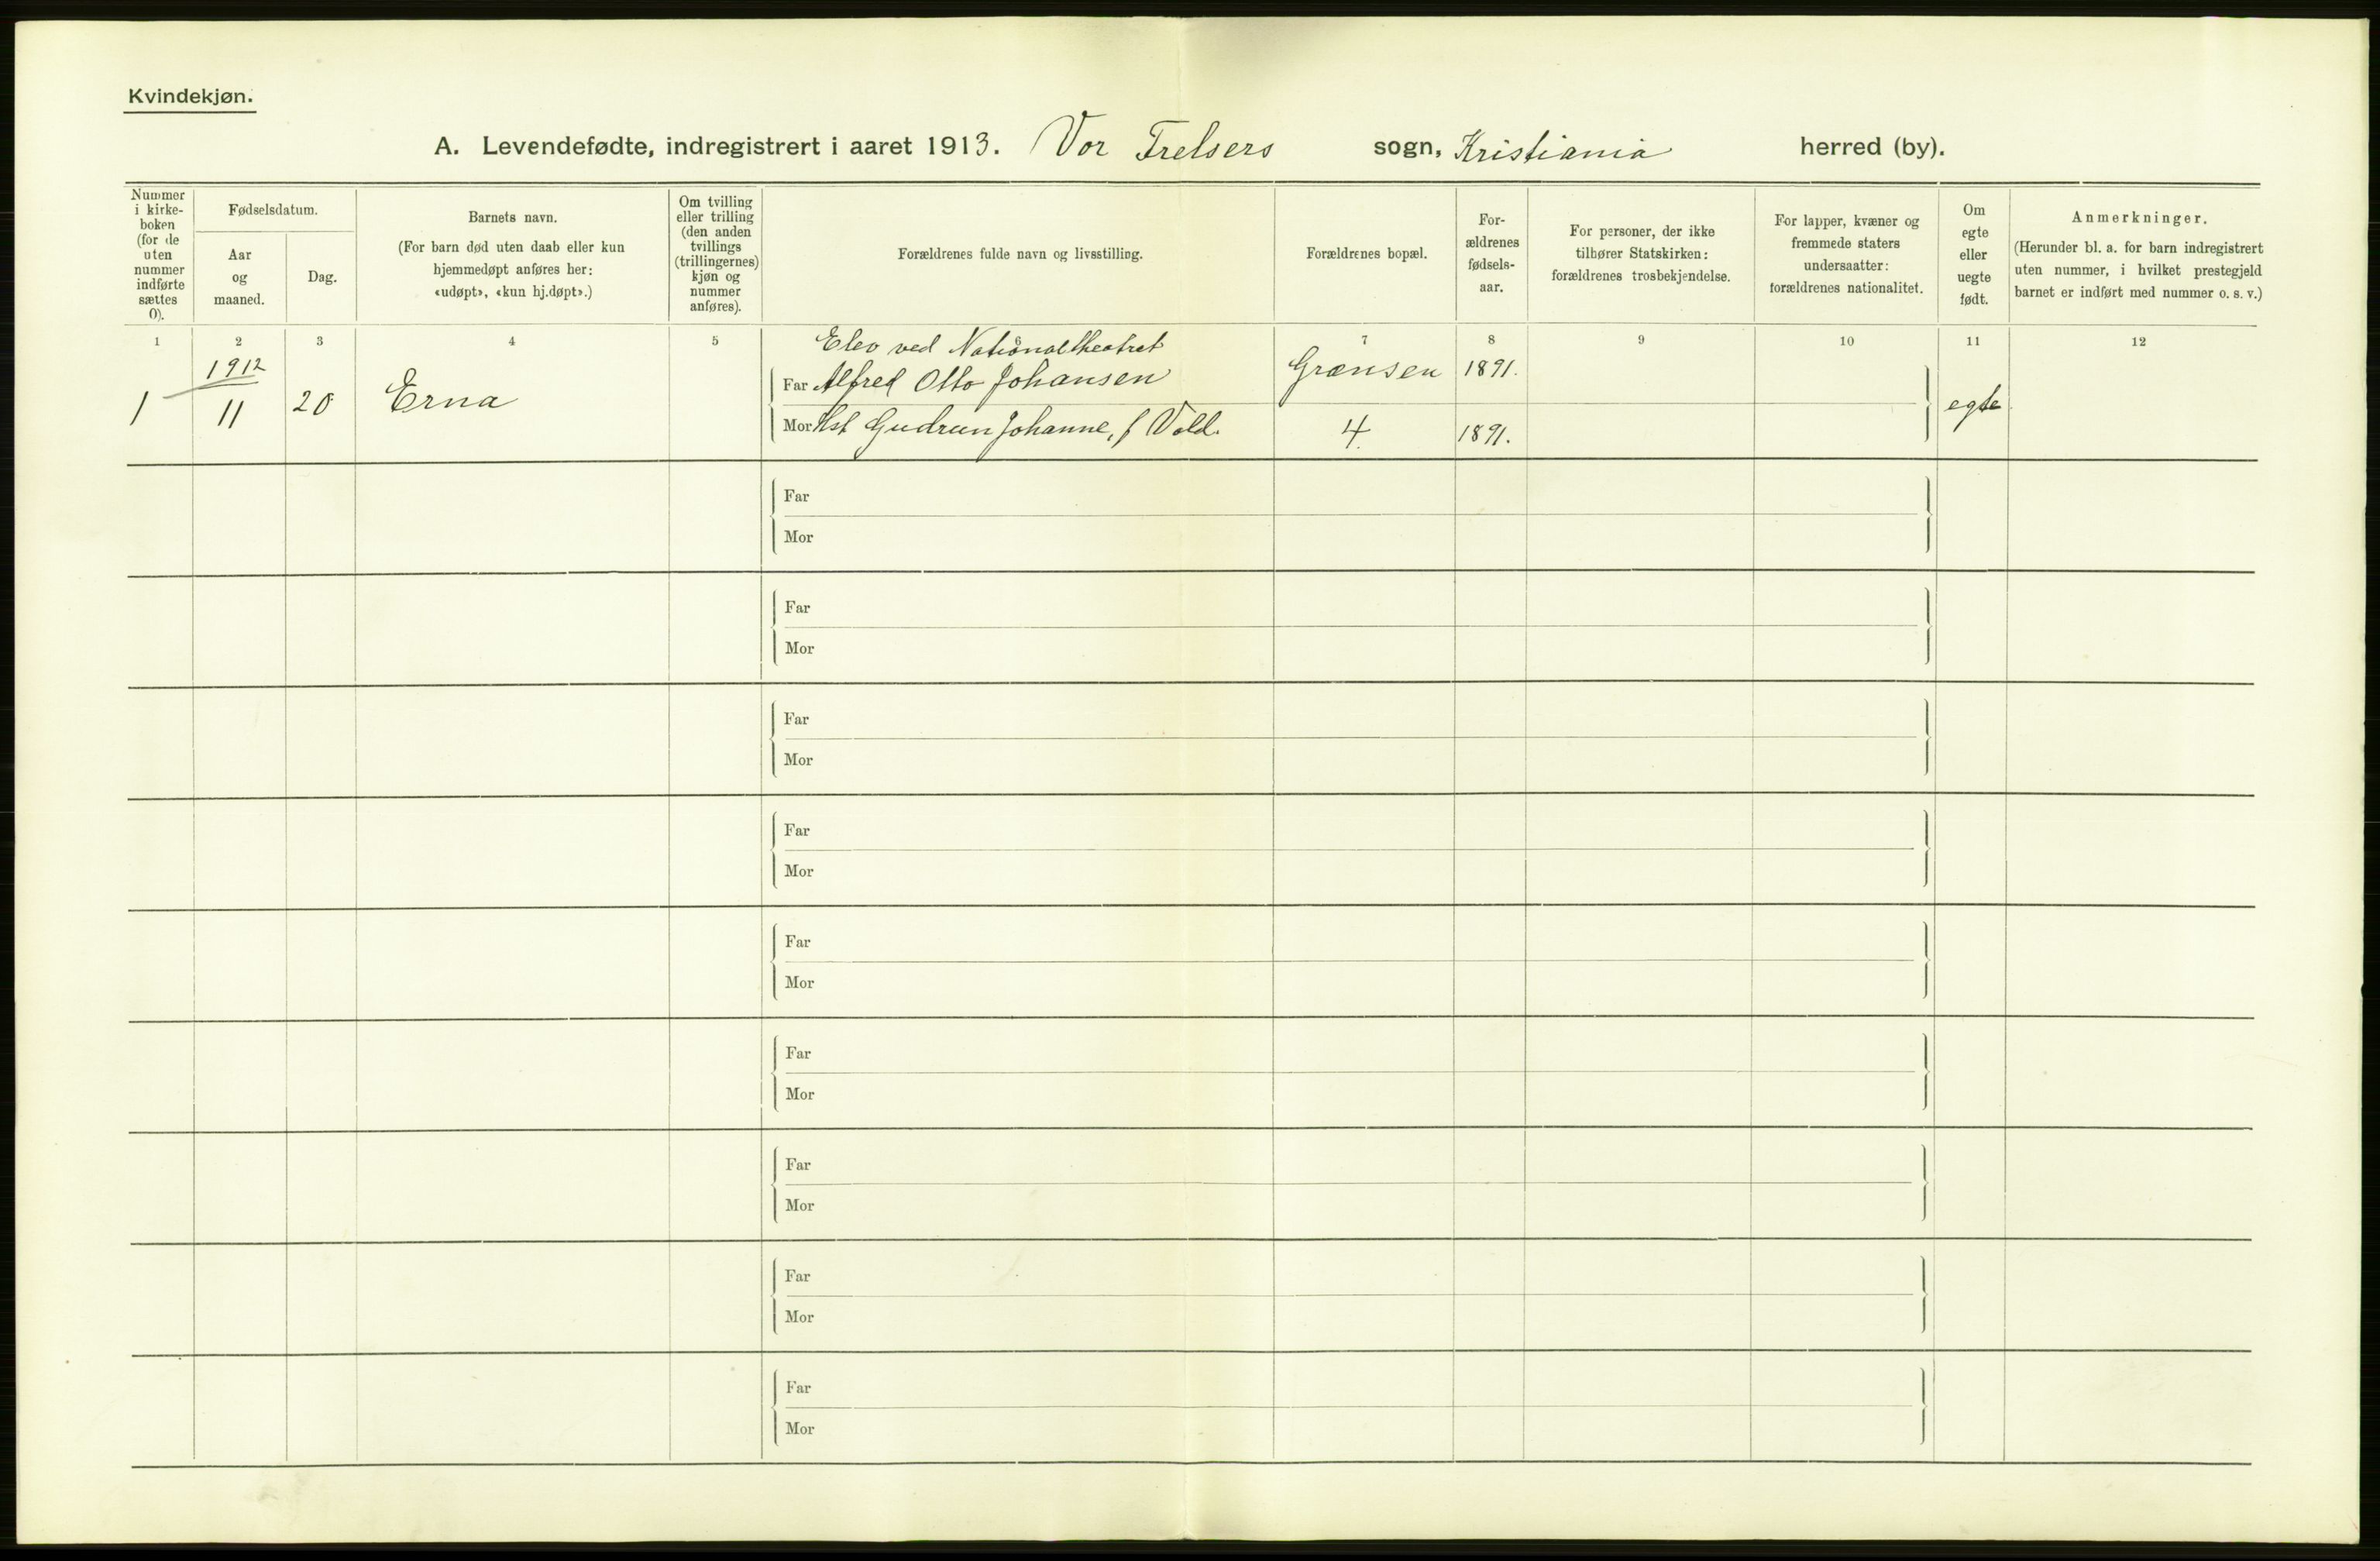 Kvindekjøn.
A. Levendefødte, indregistrert i aaret 1913. Vor Frelsers sogn, Kristiania herred (by).
Nummer i kirke-
boken
(for de
uten
nummer
indførte
sættes
0).
Fødselsdatum.
Aar
og
maaned.
Dag.
Barnets navn.
(For barn død uten daab eller kun
hjemmedøpt anføres her:
«udøpt», «kun hj.døpt».)
Om tvilling
eller trilling
(den anden
tvillings
(trillingernes)
kjøn og
nummer
anføres).
Forældrenes fulde navn og livsstilling.
Forældrenes bopæl.
For-
ældrenes
fødsels-
aar.
For personer, der ikke
tilhører Statskirken:
forældrenes trosbekjendelse.
For lapper, kvæner og
fremmede staters
undersaatter:
forældrenes nationalitet.
Om
egte
eller
uegte
født.
Anmerkninger.
(Herunder bl. a. for barn indregistrert
uten nummer, i hvilket prestegjeld
barnet er indført med nummer o. s. v.)
1 2 3 4 5 6 7 8 9 10 11 12
Elev ved Nationaltheatret
1912
Far Alfred Otto Johansen Grænsen 1891.
1 11 20 Erna egte
Mor Gudrun Johanne, f Vold. 4. 1891.
Far
Mor
Far
Mor
Far
Mor
Far
Mor
Far
Mor
Far
Mor
Far
Mor
Far
Mor
Far
Mor